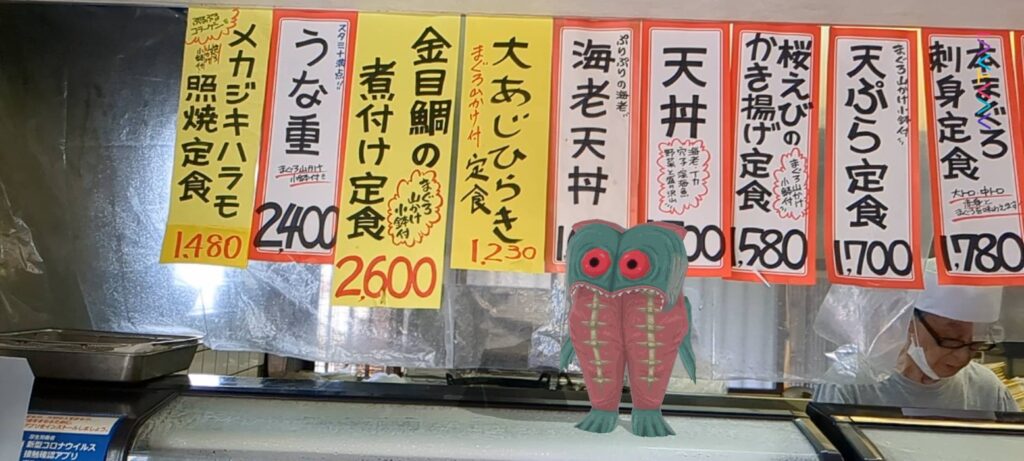 ぷるぷる
コラーゲン!!
メカジキハラモ
照焼定食
1,480
スタミナ満点!!
うな重
まぐろ山かけ
小鉢付!!
2,400
金目鯛の
煮付け定食
まぐろ
山かけ
小鉢付
2,600
大あじひらき
まぐろ山かけ付
定食
1,230
ぷりぷりの海老!!
海老天丼
天丼
海老・イカ
穴子・深海魚
野菜と盛り沢山
桜えびの
かき揚げ定食
まぐろ山かけ
小鉢付
1,580
まぐろ山かけ小鉢付!!
天ぷら定食
1,700
本まぐろ
刺身定食
大トロ・中トロ
赤身と
1,780
厚生労働省
新型コロナウイルス
接触確認アプリ